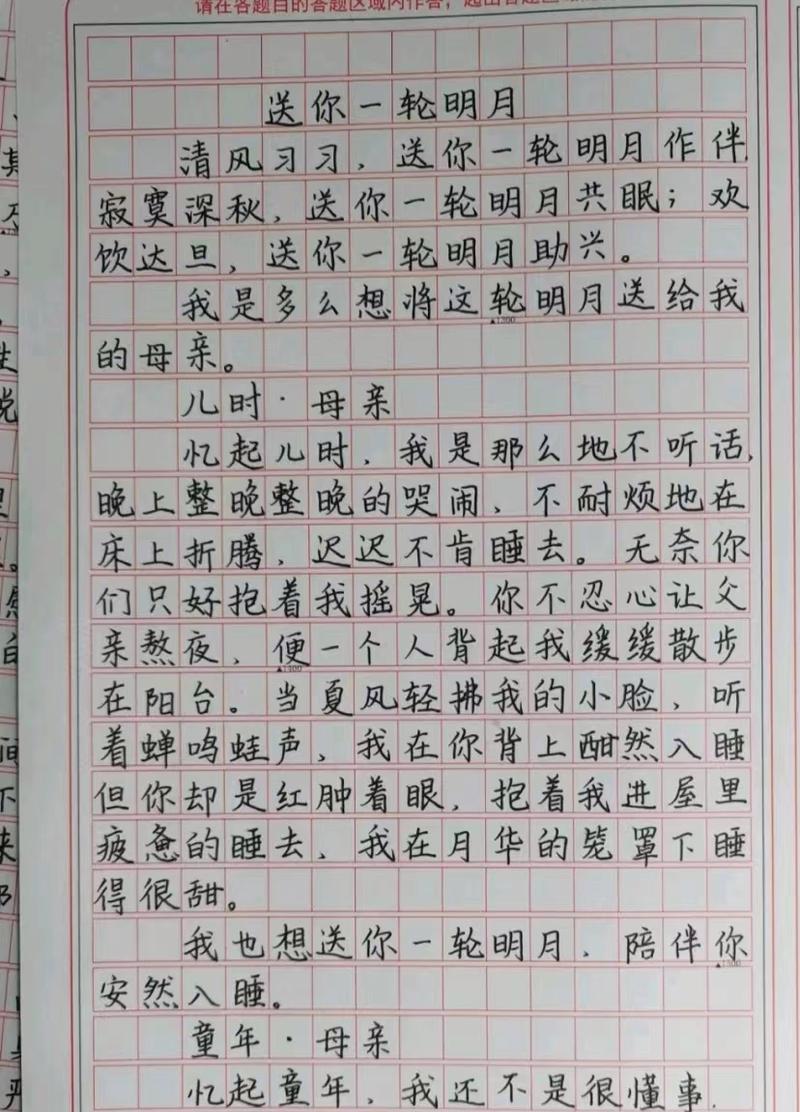 请在各题目的答题区域内作答，超出答题区
送你一轮明月
清风习习，送你一轮明月作伴，
寂寞深秋，送你一轮明月共眠；欢
饮达旦，送你一轮明月助兴。
我是多么想将这轮明月送给我
▲1200
的母亲。
儿时·母亲
忆起儿时，我是那么地不听话，
晚上整晚整晚的哭闹，不耐烦地在
床上折腾，迟迟不肯睡去。无奈你
们只好抱着我摇晃。你不忍心让父
亲熬夜，便一个人背起我缓缓散步
▲1300
在阳台。当夏风轻拂我的小脸，听
着蝉鸣蛙声，我在你背上酣然入睡
但你却是红肿着眼，抱着我进屋里
疲惫的睡去，我在月华的笼罩下睡
得很甜。
我也想送你一轮明月，陪伴你
安然入睡。
童年·母亲
忆起童年，我还不是很懂事，